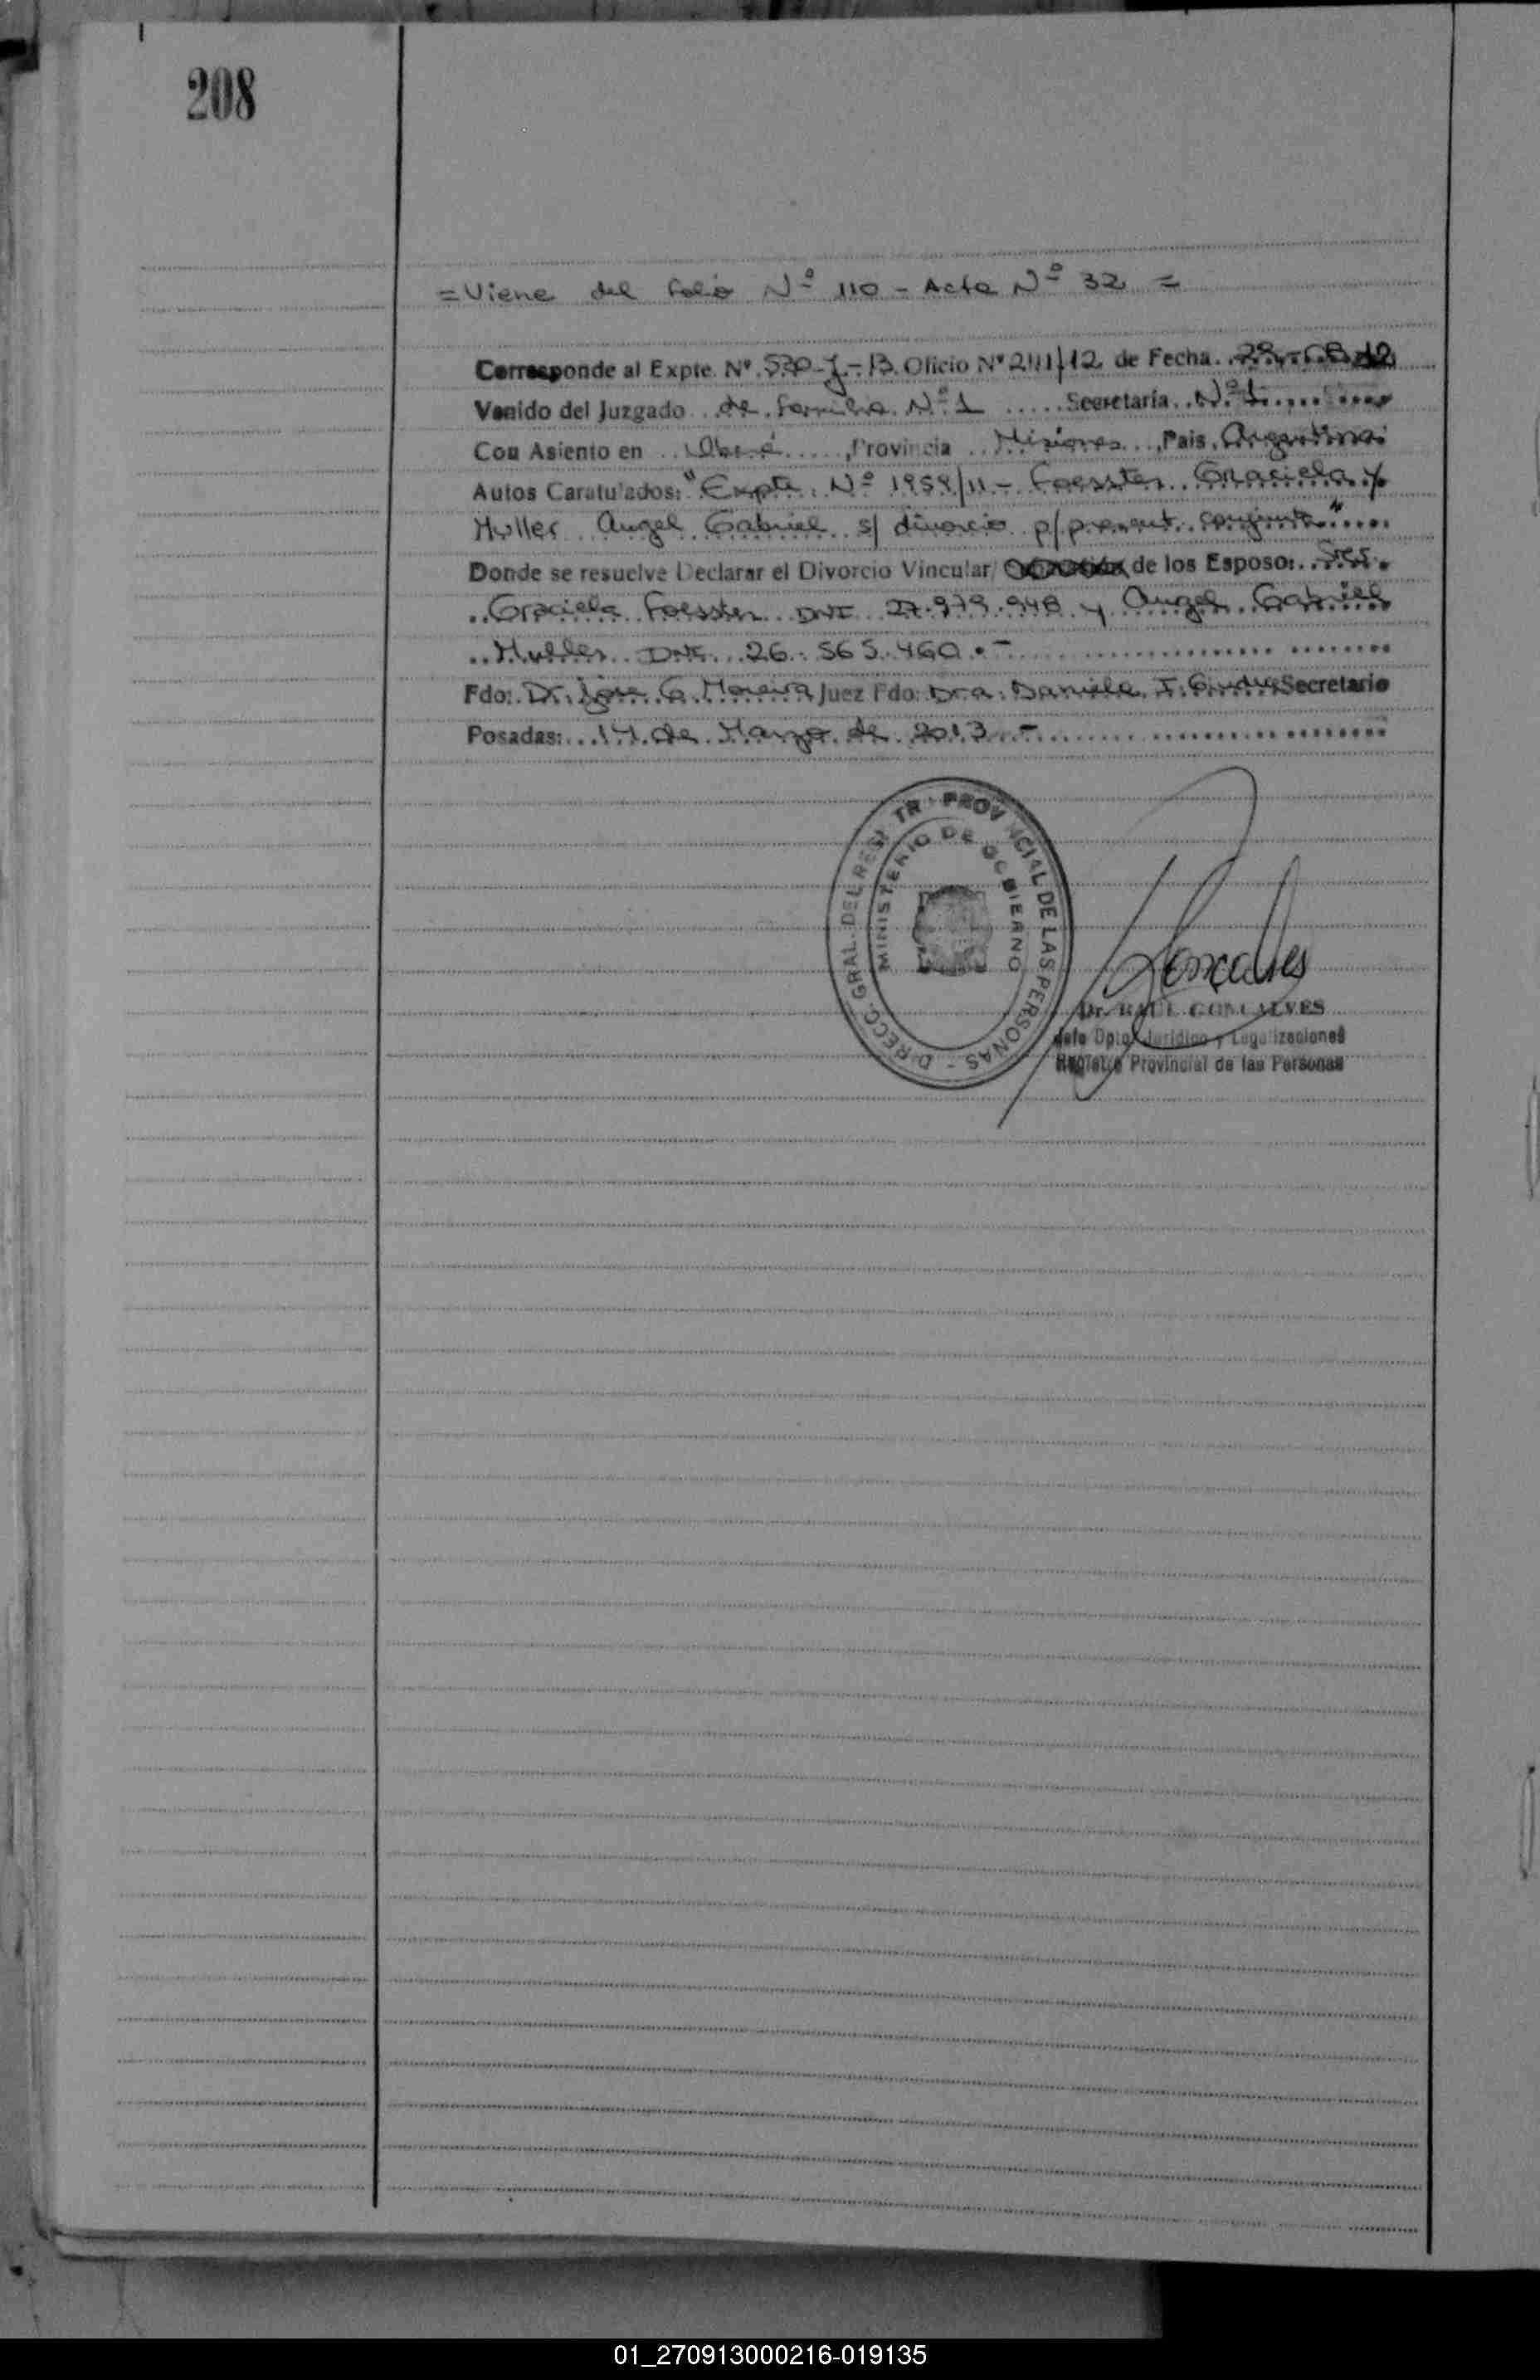 208
= Viene del folio Nº 110 - Acta Nº 32 =
Corresponde al Expte. Nº 530-J-13 Oficio Nº 2111/12 de Fecha
Venido del Juzgado de Familia Nº 1 Secretaría Nº 1
Con Asiento en Oberá, Provincia Misiones, Pais Argentina
Autos Caratulados: "Expte. Nº 1959/11 - Foesster Graciela y
Muller Angel Gabriel s/ divorcio p/ present. conjunta"
Donde se resuelve Declarar el Divorcio Vincular/ de los Esposo: Sres.
Graciela Foesster DNI 27.979.948 y Angel Gabriel
Muller DNI 26.565.460.-
Fdo: Dr. Jose G. Moreira Juez Fdo: Dra. Daniela I. Secretario
Posadas: 14 de Marzo de 2013 -
DIRECC. GRAL. DEL REGISTR. PROVINCIAL DE LAS PERSONAS -
MINISTERIO DE GOBIERNO
Goncalves
Dr. RAUL GONCALVES
Jefe Dpto. Jurídico y Legalizaciones
Registro Provincial de las Personas
01_270913000216-019135